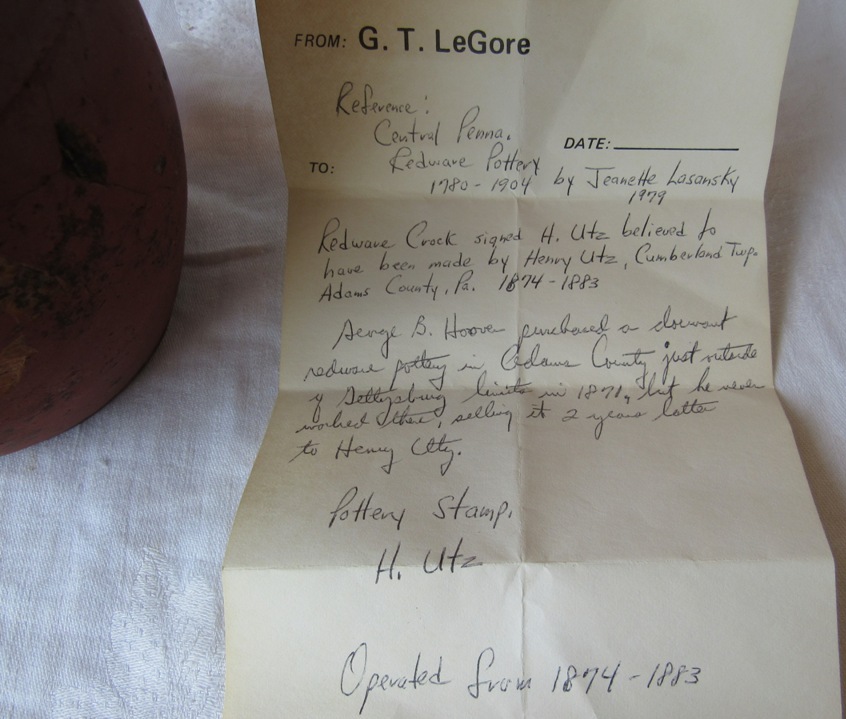 FROM: G. T. LeGore
Reference:
Central Penna.
DATE:
TO: Redware Pottery
1780 - 1904 by Jeanette Lasansky
1979
Redware Crock signed H. Utz believed to
have been made by Henry Utz, Cumberland Twp.
Adams County, Pa. 1874 - 1883
George B. Hoover purchased a dormant
redware pottery in Adams County just outside
of Gettysburg limits in 1871, but he never
worked there, selling it 2 years latter
to Henry Utz.
Pottery Stamp.
H. Utz
Operated from 1874 - 1883